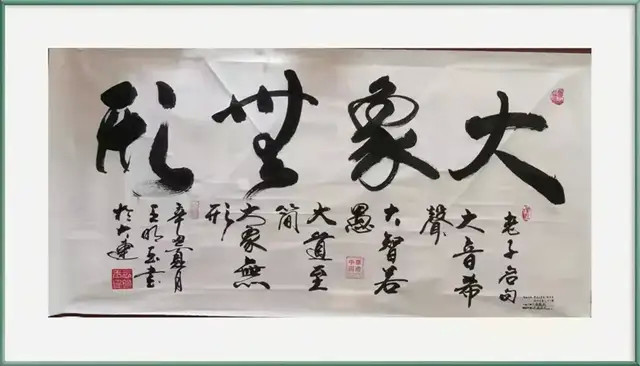 大象無形
老子名句
大音希
聲
大智若
愚
大道至
简
大象無
形
辛丑夏月
王明書
於大連